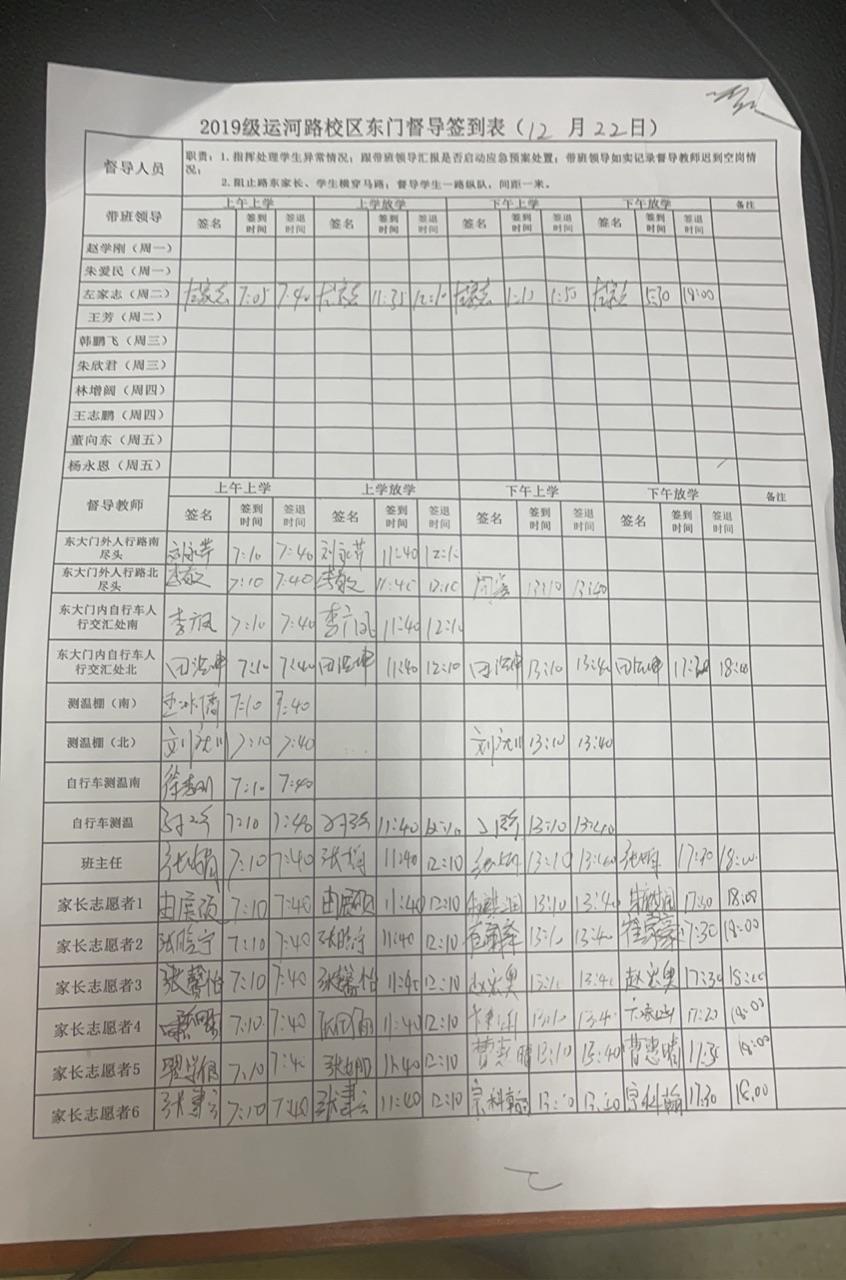 2019级运河路校区东门督导签到表（12 月 22日）
督导人员 职责：1. 指挥处理学生异常情况；跟带班领导汇报是否启动应急预案处置；带班领导如实记录督导教师迟到空岗情况；
2. 阻止路东家长、学生横穿马路；督导学生一路纵队，间距一米。
带班领导 上午上学 上学放学 下午上学 下午放学 备注
签名 签到时间 签退时间 签名 签到时间 签退时间 签名 签到时间 签退时间 签名 签到时间 签退时间
赵学刚（周一）
朱爱民（周一）
左家志（周二） 左家志 7:05 7:40 左家志 11:35 12:10 左家志 1:10 1:50 左家志 5:30 18:00
王芳（周二）
韩鹏飞（周三）
朱欣君（周三）
林增阔（周四）
王志鹏（周四）
董向东（周五）
杨永恩（周五）
督导教师 上午上学 上学放学 下午上学 下午放学 备注
签名 签到时间 签退时间 签名 签到时间 签退时间 签名 签到时间 签退时间 签名 签到时间 签退时间
东大门外人行路南尽头 7:10 7:40 11:40 12:10
东大门外人行路北尽头 7:10 7:40 11:40 12:10 13:10 13:40
东大门内自行车人行交汇处南 7:10 7:40 11:40 12:10
东大门内自行车人行交汇处北 7:10 7:40 11:40 12:10 13:10 13:40 17:30 18:00
测温棚（南） 7:10 7:40
测温棚（北） 7:10 7:40 13:10 13:40
自行车测温南 7:10 7:40
自行车测温 7:10 7:40 11:40 12:10 13:10 13:40
班主任 7:10 7:40 11:40 12:10 13:10 13:40 17:30 18:00
家长志愿者1 由展硕 7:10 7:40 由展硕 11:40 12:10 13:10 13:40 17:30 18:00
家长志愿者2 张晗宁 7:10 7:40 张晗宁 11:40 12:10 13:10 13:40 17:30 18:00
家长志愿者3 张馨怡 7:10 7:40 张馨怡 11:40 12:10 赵宏奥 13:10 13:40 赵宏奥 17:30 18:00
家长志愿者4 7:10 7:40 11:40 12:10 13:10 13:40 17:20 18:00
家长志愿者5 7:10 7:40 11:40 12:10 曹惠晴 13:10 13:40 曹惠晴 17:30 18:00
家长志愿者6 7:10 7:40 11:40 12:10 宗科翰 13:10 宗科翰 17:30 18:00